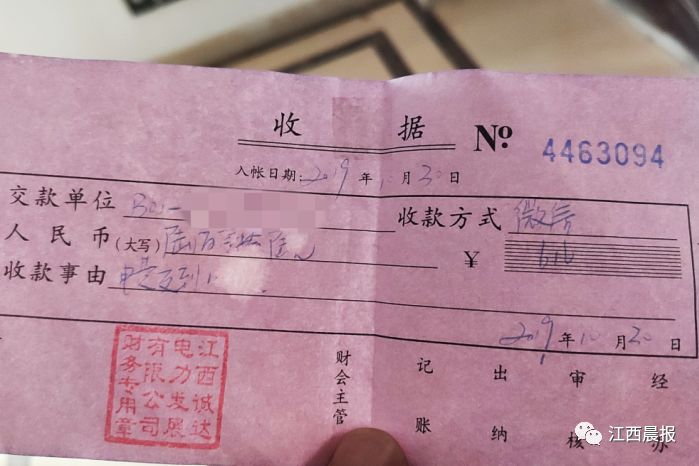 收 据 № 4463094
入帐日期: 2019 年 10 月 30 日
交款单位 收款方式 微信
人民币(大写) ¥ 616
收款事由
2019 年 10 月 30 日
江西诚达
电力发展
有限公司
财务专用章
财会主管 记账 出纳 审核 经办
江西晨报